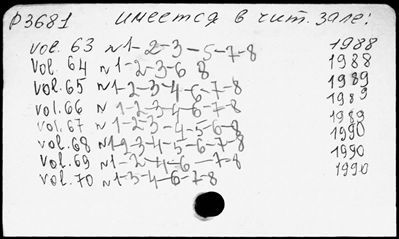 P3681 имеется в чит. зале:
vol. 63 N1-2-3-5-7-8 1988
vol. 64 N1-2-3-6 8 1988
vol. 65 N1-2-3-4-6-7-8 1989
vol. 66 N1-2-3-4-6-7-8 1989
vol. 67 N1-2-3-4-5-6-8 1989
vol. 68 N1-2-3-4-5-6-7-8 1990
vol. 69 N1-2-4-6-7-8 1990
vol. 70 N1-3-4-6-7-8 1990